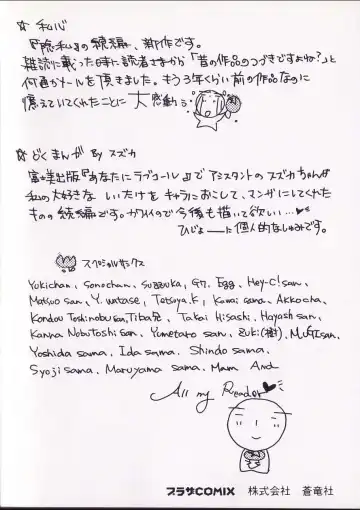 ☆ 私心
『隠し私』の続編、新作です。
雑誌に載った時に読者さまから「昔の作品のつづきですよね?」と
何通かメールを頂きました。もう3年くらい前の作品なのに
憶えていてくれたことに大感動う
☆ どくまんが By スズカ
富士美出版『あなたにラブコール』でアシスタントのスズカちゃんが
私の大好きな しいたけを キャラにおこして、マンガにしてくれた
ものの続編です。カワイイので今後も描いて欲しい…♥
ひじょーに個人的なしゅみです。
スペシャルサンクス
Yukichan, Sonochan, Suzzuka, G7, Egg, Hey-C!san,
Matsuo san, Y.watase, Tetsuya.K, Kawai sama, Akkocha,
Kondou Toshinobu san, Tiba兄, Takai Hisashi, Hayash san,
Kanna Nobutoshi san, Yumetaro san, ZUKI(樹), MUGI san,
Yoshida sama, Ida sama, Shindo sama,
Syoji sama, Maruyama sama, Mam And
All my Reader♥
プラザCOMIX 株式会社 蒼竜社